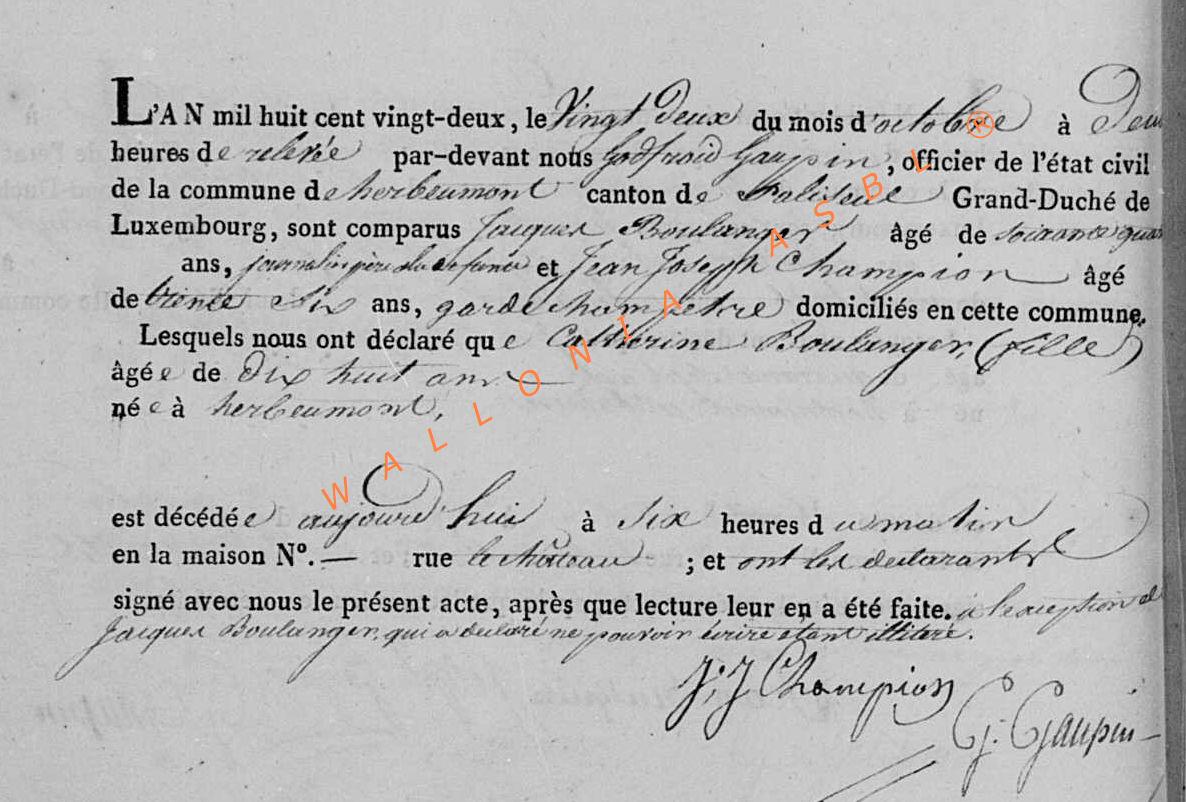 L'AN mil huit cent vingt-deux, le Vingt Deux du mois d'octobre à Deux
heures de relevée par-devant nous Godfroid Gaupin, officier de l'état civil
de la commune de herbeumont canton de Paliseul Grand-Duché de
Luxembourg, sont comparus Jacques Boulanger âgé de soixante quat
ans, journalier père du defunte et Jean Joseph Champion âgé
de trente Six ans, garde champetre domiciliés en cette commune.
Lesquels nous ont déclaré que Catherine Boulanger, (fille)
âgée de Dix huit ans
née à herbeumont,
est décédée aujourd'hui à Six heures du matin
en la maison N°. — rue le château ; et ont les declarants
signé avec nous le présent acte, après que lecture leur en a été faite. a l'exception de
Jacques Boulanger, qui a declaré ne pouvoir écrire etant illitéré.
J: J Champion
G: Gaupin
WALLONIA ASBL ®